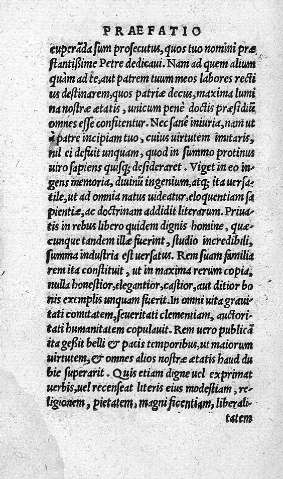 PRAEFATIO
cuperāda sum prosecutus, quos tuo nomini præ
stantißime Petre dedicaui. Nam ad quem alium
quàm ad te, aut patrem tuum meos labores recti
us destinarem, quos patriæ decus, maxima lumi
na nostræ ætatis, unicum penè doctis præsidiū
omnes esse confitentur. Nec sanè iniuria, nam ut
à patre incipiam tuo, cuius uirtutem imitaris,
nil ei defuit unquam, quod in summo protinus
uiro sapiens quisq; desideraret. Viget in eo in-
gens memoria, diuinū ingenium, atq; ita uersa-
tile, ut ad omnia natus uideatur, eloquentiam sa
pientiæ, ac doctrinam addidit literarum. Priua
tis in rebus libero quidem dignis homine, quæ-
cunque tandem illæ fuerint, studio incredibili,
summa industria est uersatus. Rem suam familia
rem ita constituit, ut in maxima rerum copia,
nulla honestior, elegantior, castior, aut ditior bo
nis exemplis unquam fuerit. In omni uita graui
tati comitatem, seueritati clementiam, auctori
tati humanitatem copulauit. Rem uero publicā
ita gessit belli & pacis temporibus, ut maiorum
uirtutem, & omnes alios nostræ ætatis haud du
bie superarit. Quis etiam digne uel exprimat
uerbis, uel recenseat literis eius modestiam, re-
ligionem, pietatem, magnificentiam, liberali-
tatem